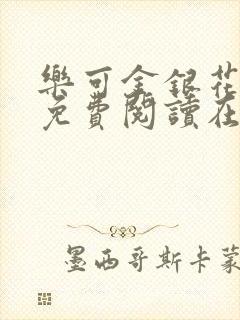 樂可金銀花
免費閱讀在
墨西哥斯卡蒙